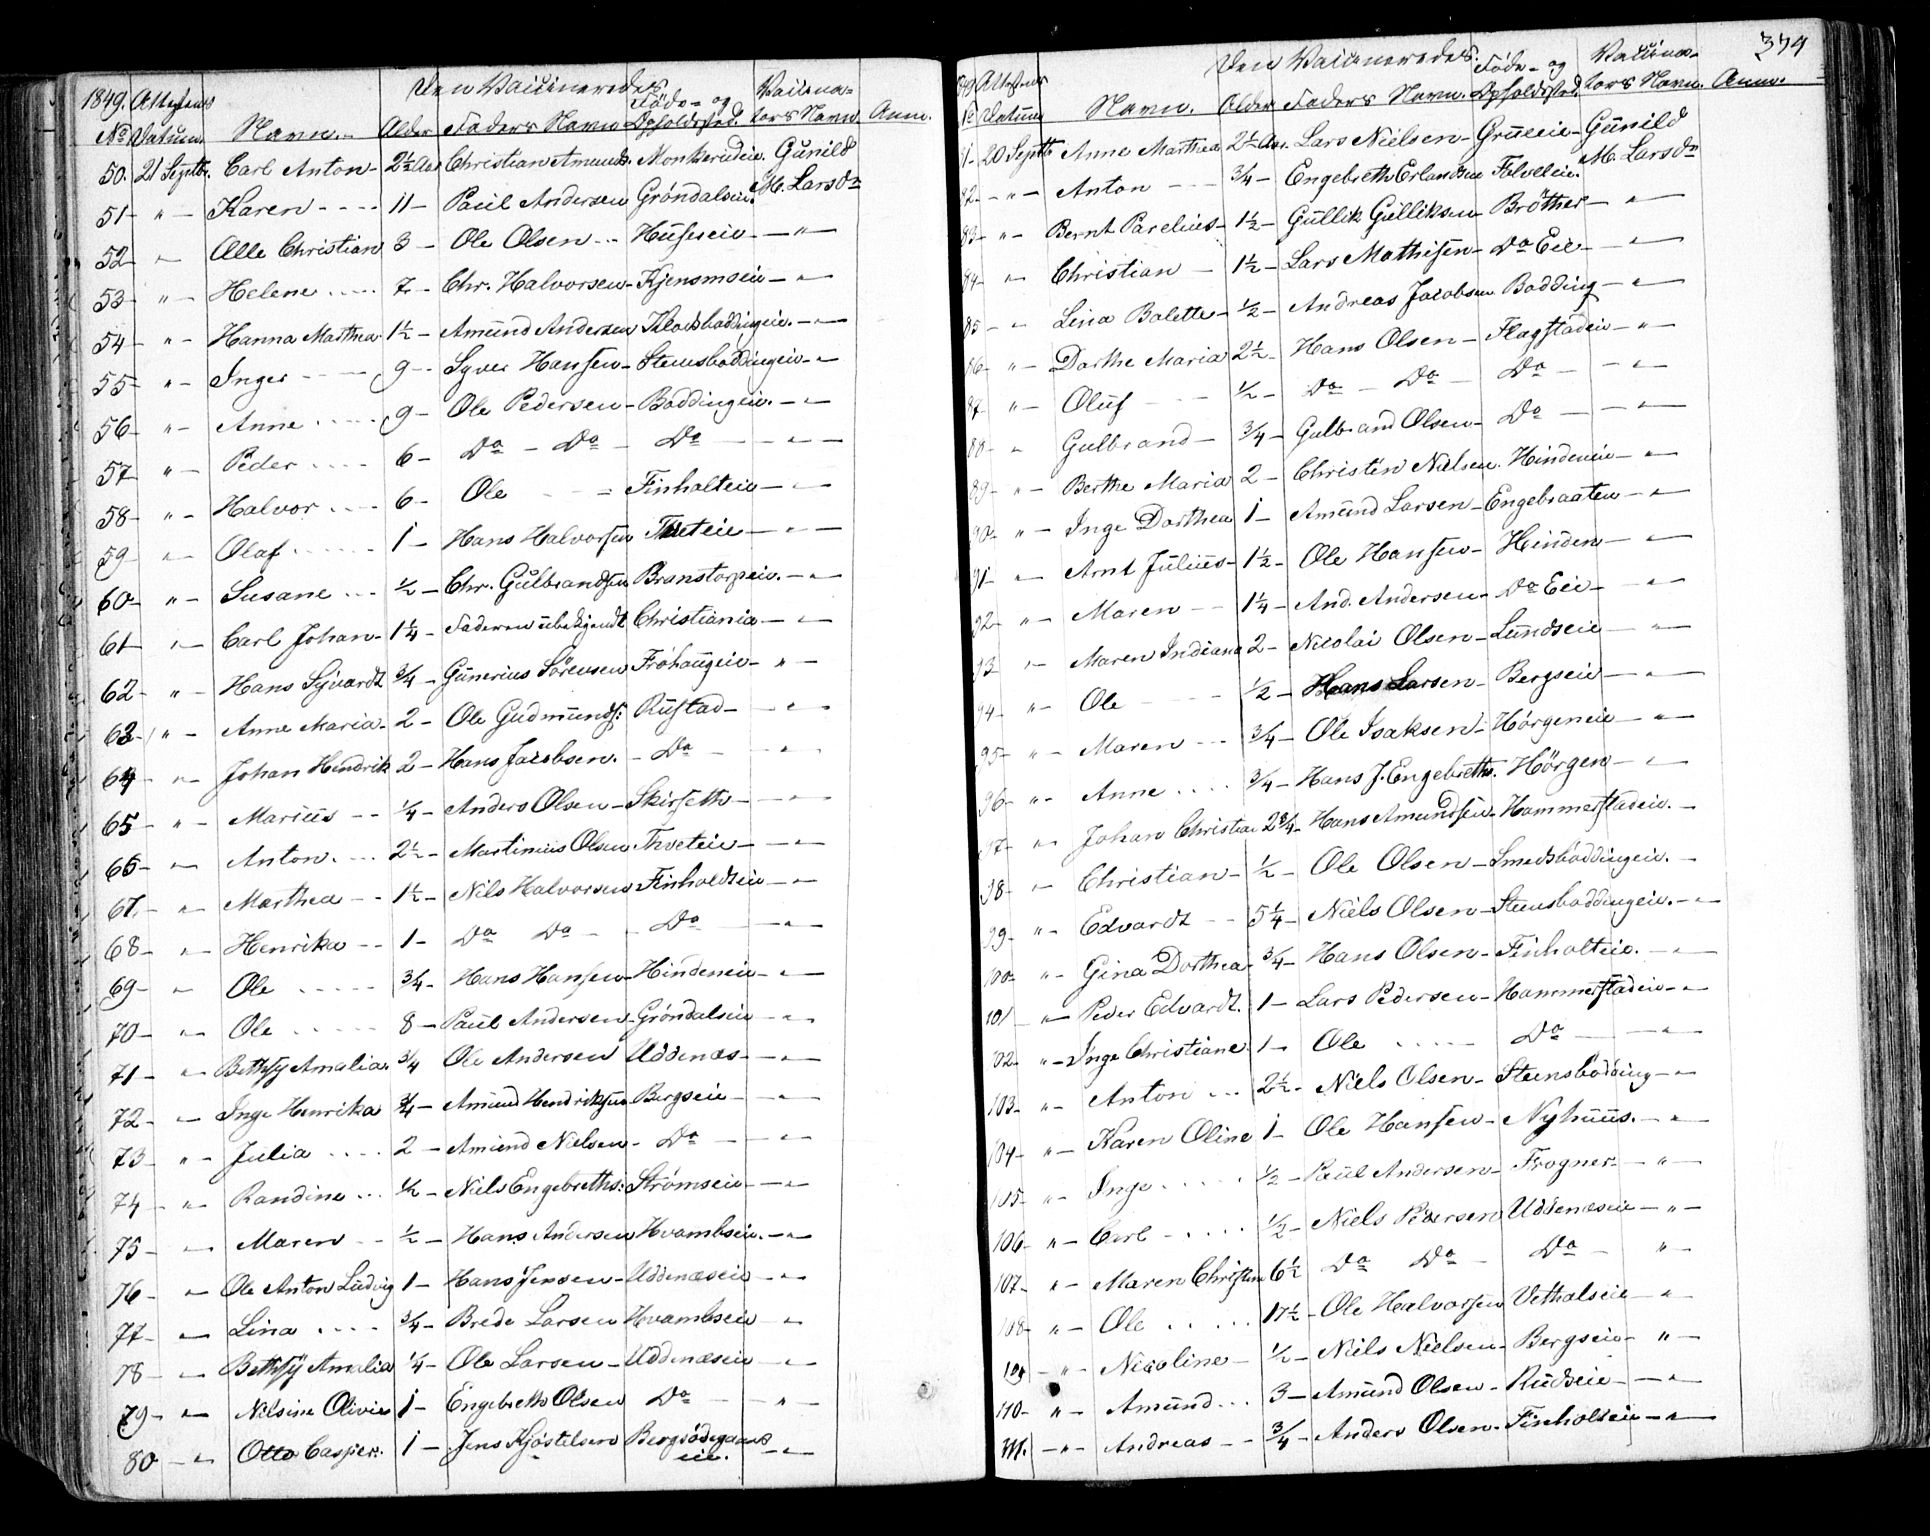 1849. Attestens Den Vaccineredes Føde- og Vaccina-
No Datum. Navn. Alder Faders Navn Opholdssted. tors Navn. Anm.
50. 21 Septbr. Carl Anton - 2½ Aar Christian Amunds. Monkerudeie. Gunild
51 - " - Karen - 11 - Paul Andersen Grøndalseie. M. Larsdr
52 " - Olle Christian 3 - Ole Olsen - Huseeie - " -
53 - " - Helene - 7 - Chr. Halvorsen - Kjensmoeie - " -
54 - " - Hanna Marthea 1½ - Amund Andersen Klocksbøddingeie. - " -
55 - " - Inger - 9 - Syver Hansen - Steensbøddingeie - " -
56 - " - Anne - 9 - Ole Pedersen - Boddingeie. - " -
57 " - Peder - 6 - Do - Do - Do - " -
58 - " - Halvor - 6 - Ole - = Finholteie - " -
59 - " - Olaf - 1 - Hans Halvorsen Tveteie - " -
60 - " - Susane - ½ - Chr. Gulbrandsen Branstorpeie. - " -
61 - " - Carl Johan - 1¼ - Faderen ubekjendt Christiania - " -
62 - " - Hans Syvardt ¾ - Gunerius Sörensen Frøhaugeie - " -
63 - " - Anne Maria - 2 - Ole Gudmunds: Rustad - " -
64 - " - Johan Hendrik 2 - Hans Jacobsen. - Do - " -
65 - " - Marius - ¼ - Anders Olsen - Skirseth - " -
66 - " - Anton - 2½ - Martinius Olsen Thveteie - " -
67. - " - Marthea - 1½ - Nils Halvorsen Finholdteie - " -
68 - " - Henrika - 1 - Do Do - Do - " -
69 - " - Ole - ¾ - Hans Hansen - Hindeneie - " -
70 - " - Ole - 8 - Paul Andersen - Grøndalseie - " -
71 - " - Bethsy Amalia. ¾ Ole Andersen Uddenæs - " -
72 - " - Inge Henrika ¾ - Amund Hendriksen Bergseie - " -
73 - " - Julia - 2 - Amund Nielsen - Do - " -
74 - " - Randine - ½ - Niels Engebreths: Strømseie - " -
75 - " - Maren - ½ - Hans Andersen Hvambseie. - " -
76 - " - Ole Anton Ludvig 1 - Hans Jensen - Uddenæseie - " -
77 - " - Lina - ¾ - Brede Larsen Hvambseie - " -
78 - " - Bethsy Amalia ¼ - Ole Larsen - Uddenæseie - " -
79 - " - Nilsine Olivie 1 - Engebreth Olsen Do - " -
80 - " - Otto Casper. 1 - Jens Kjøstelsen Bergsødegaard - " -
eie.
374
Attestens Den Vaccineredes Føde- og Vaccina-
Datum Navn. Alder Faders Navn. Opholdssted. tors Navn. Anm.
1 - 20 Septb Anne Marthea 2½ Aar. Lars Nielsen - Grueeie - Gunild
82 - " - Anton - ¾ - Engebreth Erlandsen Fælveleie. M. Larsdr
83 - " - Bernt Parelius - 1½ - Gullik Gulliksen Bröther - " -
84 - " - Christian - 1½ - Lars Mathisen - Do Eie - " -
85 - " - Lina Bolette - ½ - Andreas Jacobsen Bodding - " -
86 - " - Dorthe Maria 2½ - Hans Olsen - Flagstadeie - " -
87 - " - Oluf - ½ - Do - Do - Do - " -
88 - " Gulbrand - ¾ - Gulbrand Olsen - Do - " -
89 - " - Berthe Maria 2 - Christen Nielsen. Hindeneie - " -
90 - " - Inge Dorthea 1 - Amund Larsen - Engebraaten - " -
91 - " - Arnt Julius - 1½ - Ole Hansen - Hinden - " -
92 - " - Maren - 1¼ - And. Andersen - Do Eie - " -
93 " - Maren Indiana 2 - Nicolai Olsen - Lundseie - " -
94 - " - Ole - ½ - Hans Larsen - Bergseie - " -
95 - " - Maren - ¾ - Ole Isaksen - Hörgeneie - " -
96 - " - Anne - ¾ - Hans J. Engebreths. Hörgen - " -
97 - " - Johan Christian 2¾ - Hans Amundsen - Hammerstadeie. -
98 - " - Christian - ½ - Ole Olsen - Smedsbøddingeie. -
99 - " - Edvardt - 5¼ - Niels Olsen - Steensbøddingeie. - " -
100 - " - Gina Dorthea. ¾ - Hans Olsen - Finholteie. - " -
101 - " - Peder Edvardt. 1 - Lars Pedersen - Hammerstadeie - " -
102 - " - Inge Christiane. 1 - Ole - Do - " -
103 - " - Anton - 2½ - Niels Olsen - Steensbødding - " -
104 - " - Karen Oline 1 - Ole Hansen - Nyhuus. - " -
105 - " - Inge - ½ - Paul Andersen - Frogner - " -
106 - " - Carl - ½ - Niels Pedersen Uddenæseie - " -
107 - " - Maren Christine 6½ Do Do - Do - "
108 - " - Ole - 17½ - Ole Halvorsen Vethalseie - " -
109 - " - Nicoline - ½ - Niels Nielsen - Bergseie - " -
110 - " - Amund - 3 - Amund Olsen - Rudseie - " -
111. - " - Andreas - ¾ - Anders Olsen - Finholteie - " -